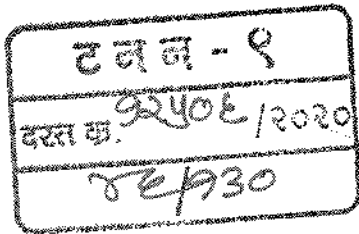 ट न न - ९
दस्त क्र. १२५०६ /२०२०
४६/१३०